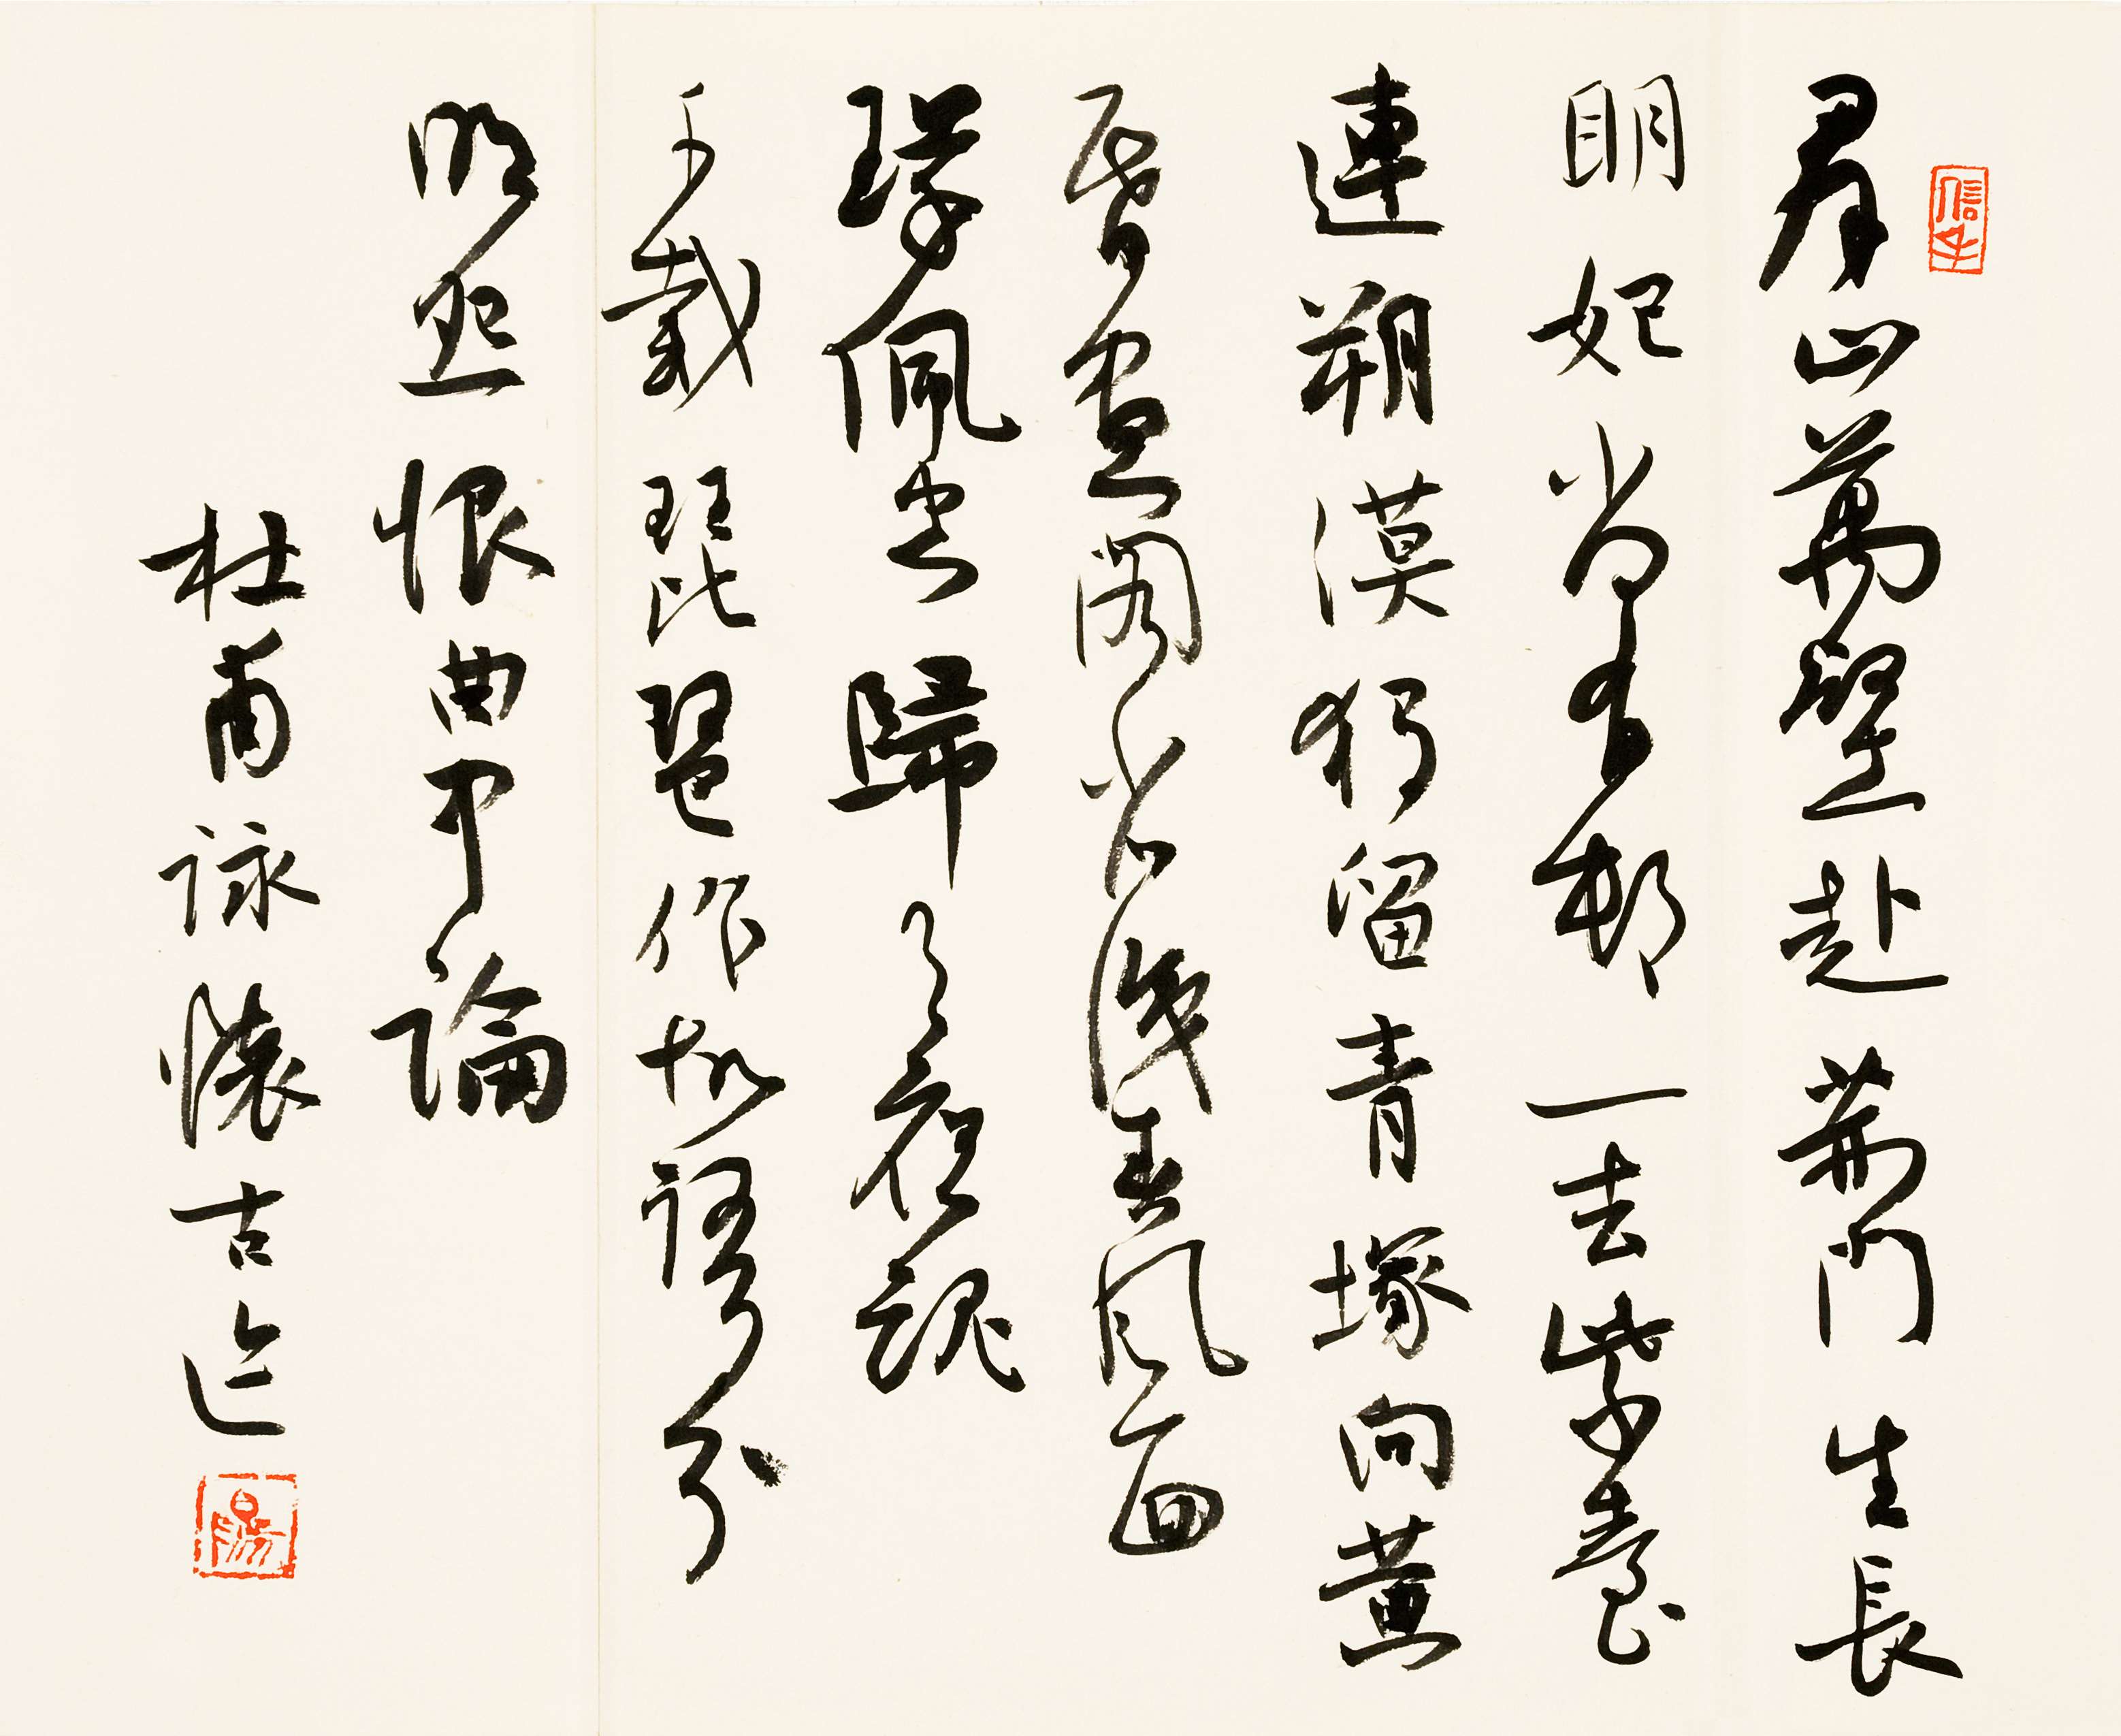 信手
羣山萬壑赴荊門生長
明妃尚有邨一去紫臺
連朔漠獨留青塚向黃
昏畫圖省識春風面
環佩空歸月夜魂
千載琵琶作胡語分
明怨恨曲中論
杜甫詠懷古迹